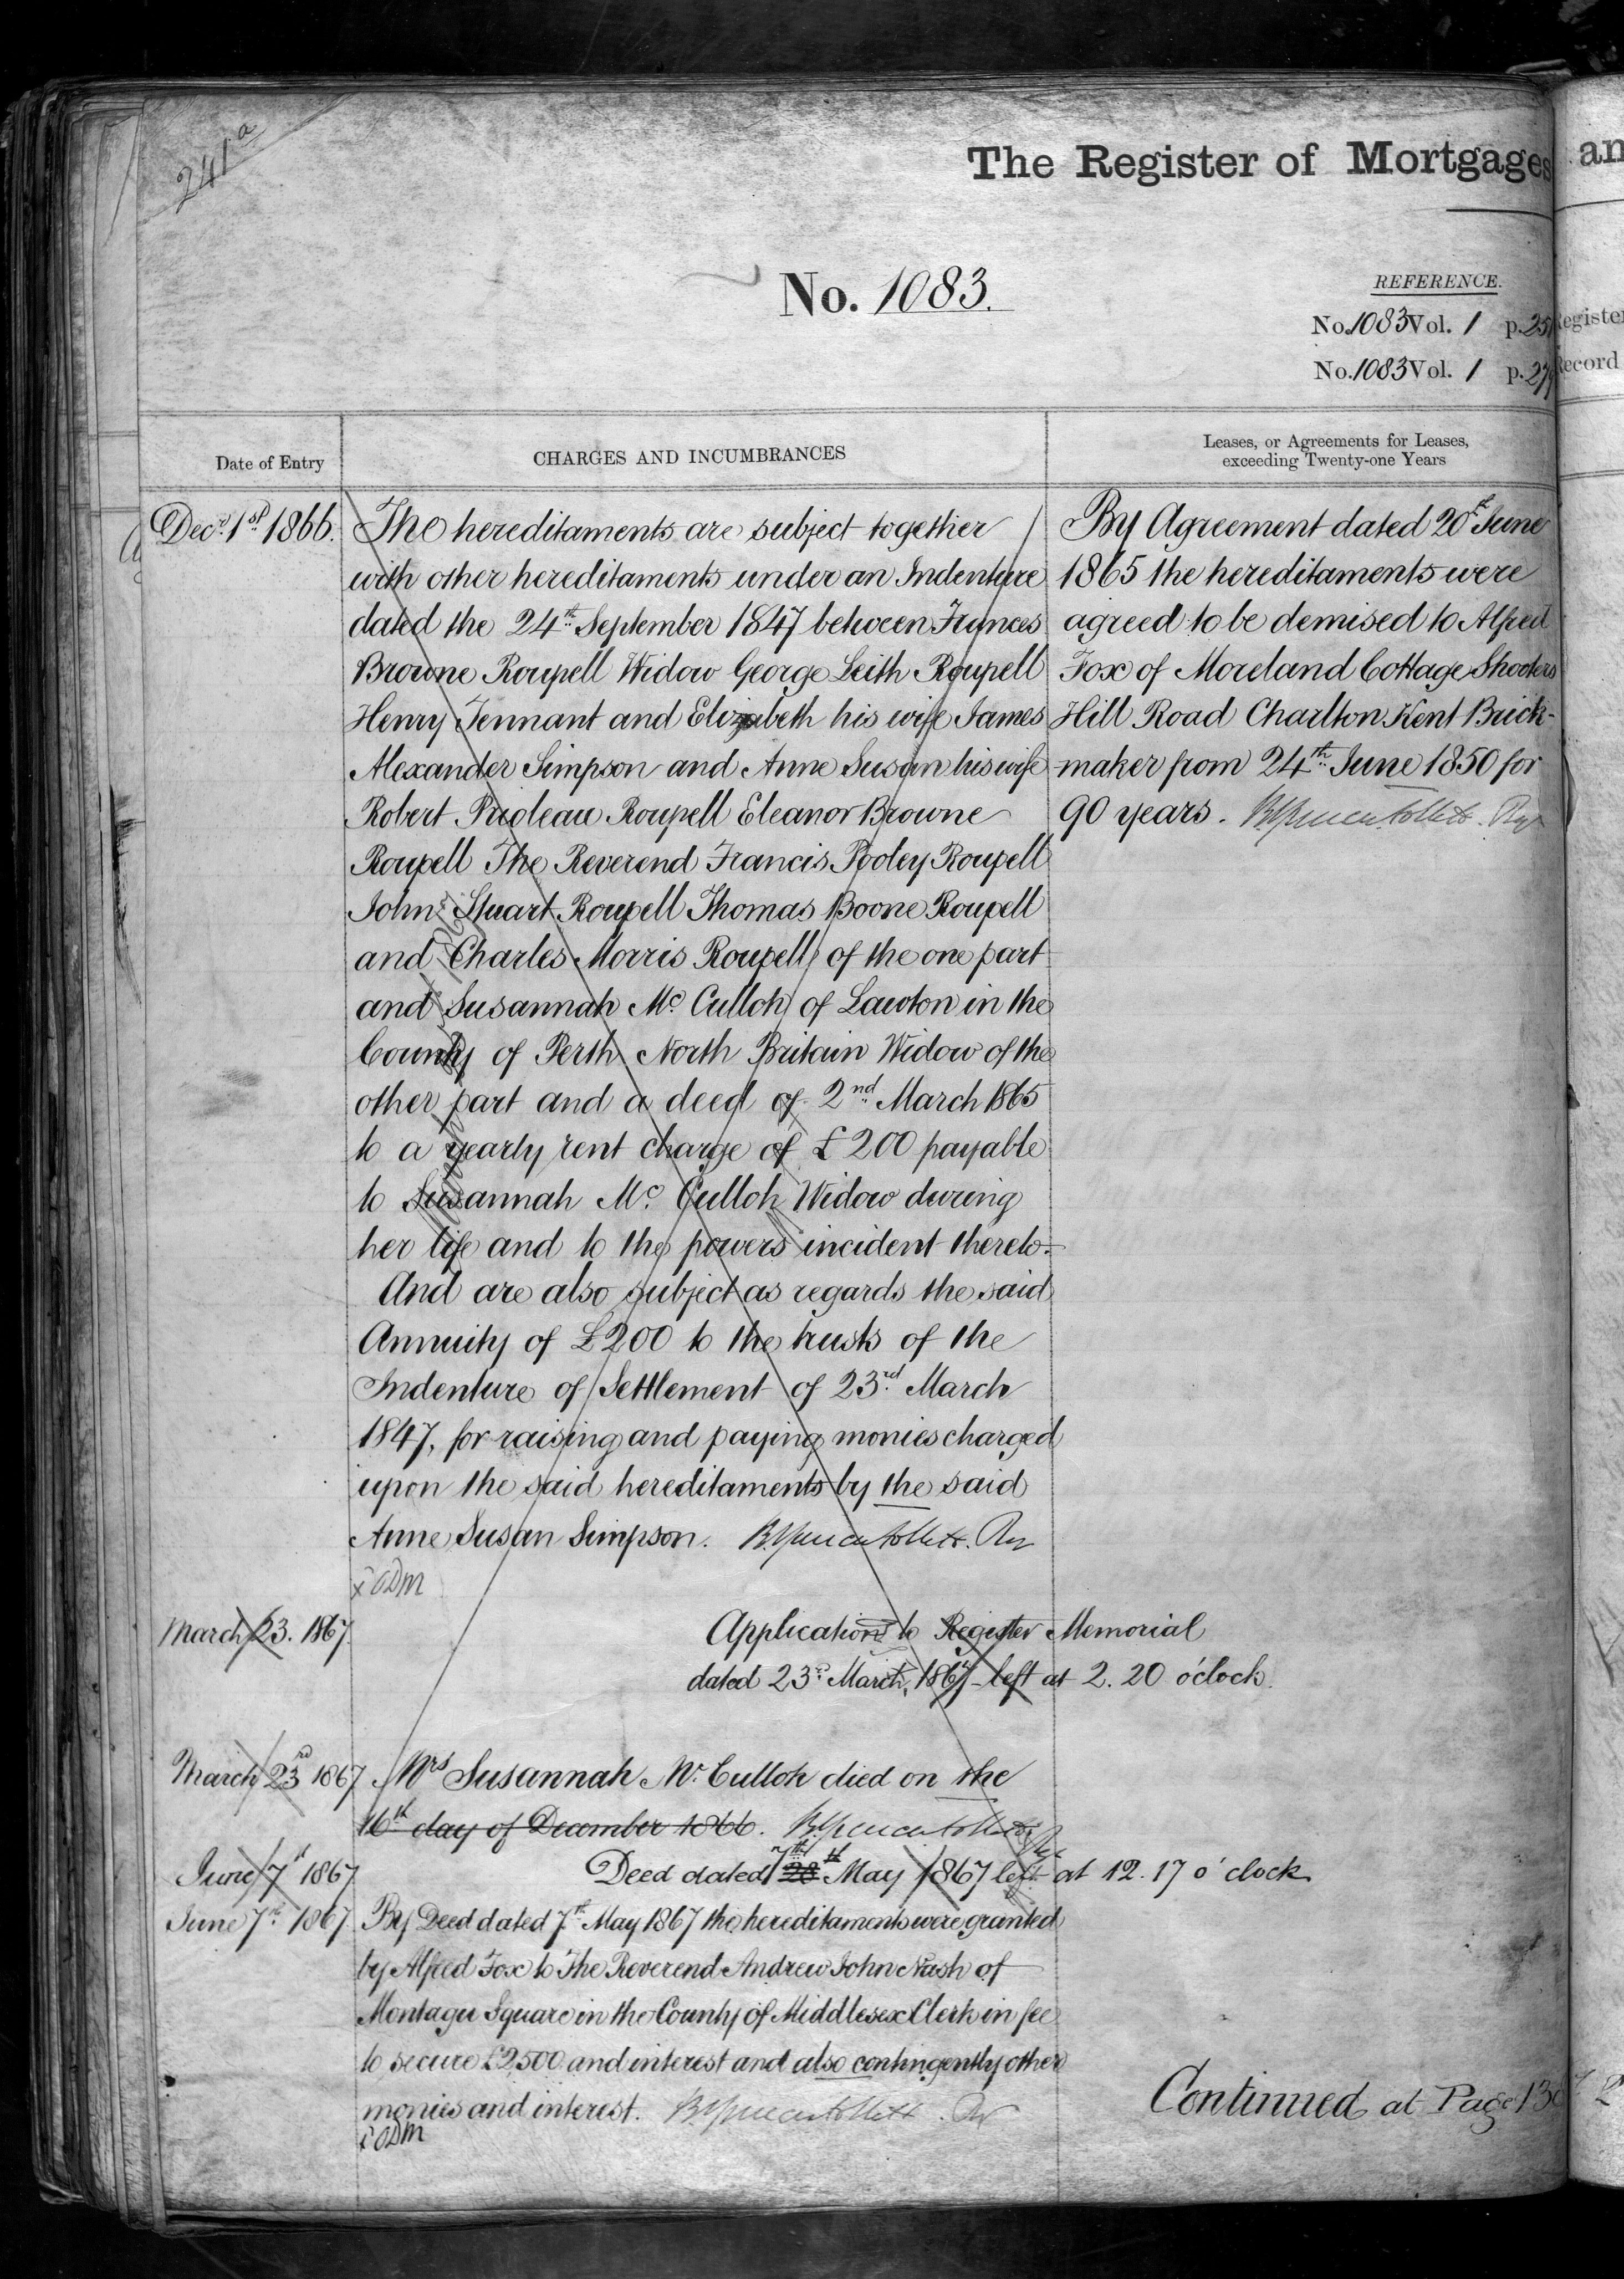 241a
The Register of Mortgages an
No. 1083.
REFERENCE.
No. 1083 Vol. 1 p. 25 Register
No. 1083 Vol. 1 p. 27 Record
Date of Entry
CHARGES AND INCUMBRANCES
Leases, or Agreements for Leases,
exceeding Twenty-one Years
Decr. 1st 1866.
The hereditaments are subject together
with other hereditaments under an Indenture
dated the 24th September 1847 between Frances
Browne Roupell Widow George Leith Roupell
Henry Tennant and Elizabeth his wife James
Alexander Simpson and Anne Susan his wife
Robert Prioleau Roupell Eleanor Browne
Roupell The Reverend Francis Pooley Roupell
John Stuart Roupell Thomas Boone Roupell
and Charles Morris Roupell of the one part
and Susannah Mc. Culloh of Lawton in the
County of Perth North Britain Widow of the
other part and a deed of 2nd March 1865
to a yearly rent charge of £200 payable
to Susannah Mc. Culloh Widow during
her life and to the powers incident thereto.
And are also subject as regards the said
Annuity of £200 to the trusts of the
Indenture of Settlement of 23rd March
1847, for raising and paying monies charged
upon the said hereditaments by the said
Anne Susan Simpson.
x ODM
By Agreement dated 20th June
1865 the hereditaments were
agreed to be demised to Alfred
Fox of Moreland Cottage Shooters
Hill Road Charlton Kent Brick-
maker from 24th June 1850 for
90 years.
March 23. 1867.
Application to Register Memorial
dated 23rd March, 1867 left at 2.20 o'clock.
March 23rd 1867
Mrs Susannah Mc. Culloh died on the
16th day of December 1866.
June 7th 1867
Deed dated 7th 28th May 1867 left at 12.17 o'clock
June 7th 1867.
By Deed dated 7th May 1867 the hereditaments were granted
by Alfred Fox to The Reverend Andrew John Nash of
Montagu Square in the County of Middlesex Clerk in fee
to secure £2,500 and interest and also contingently other
monies and interest.
x ODM
Continued at Page 13